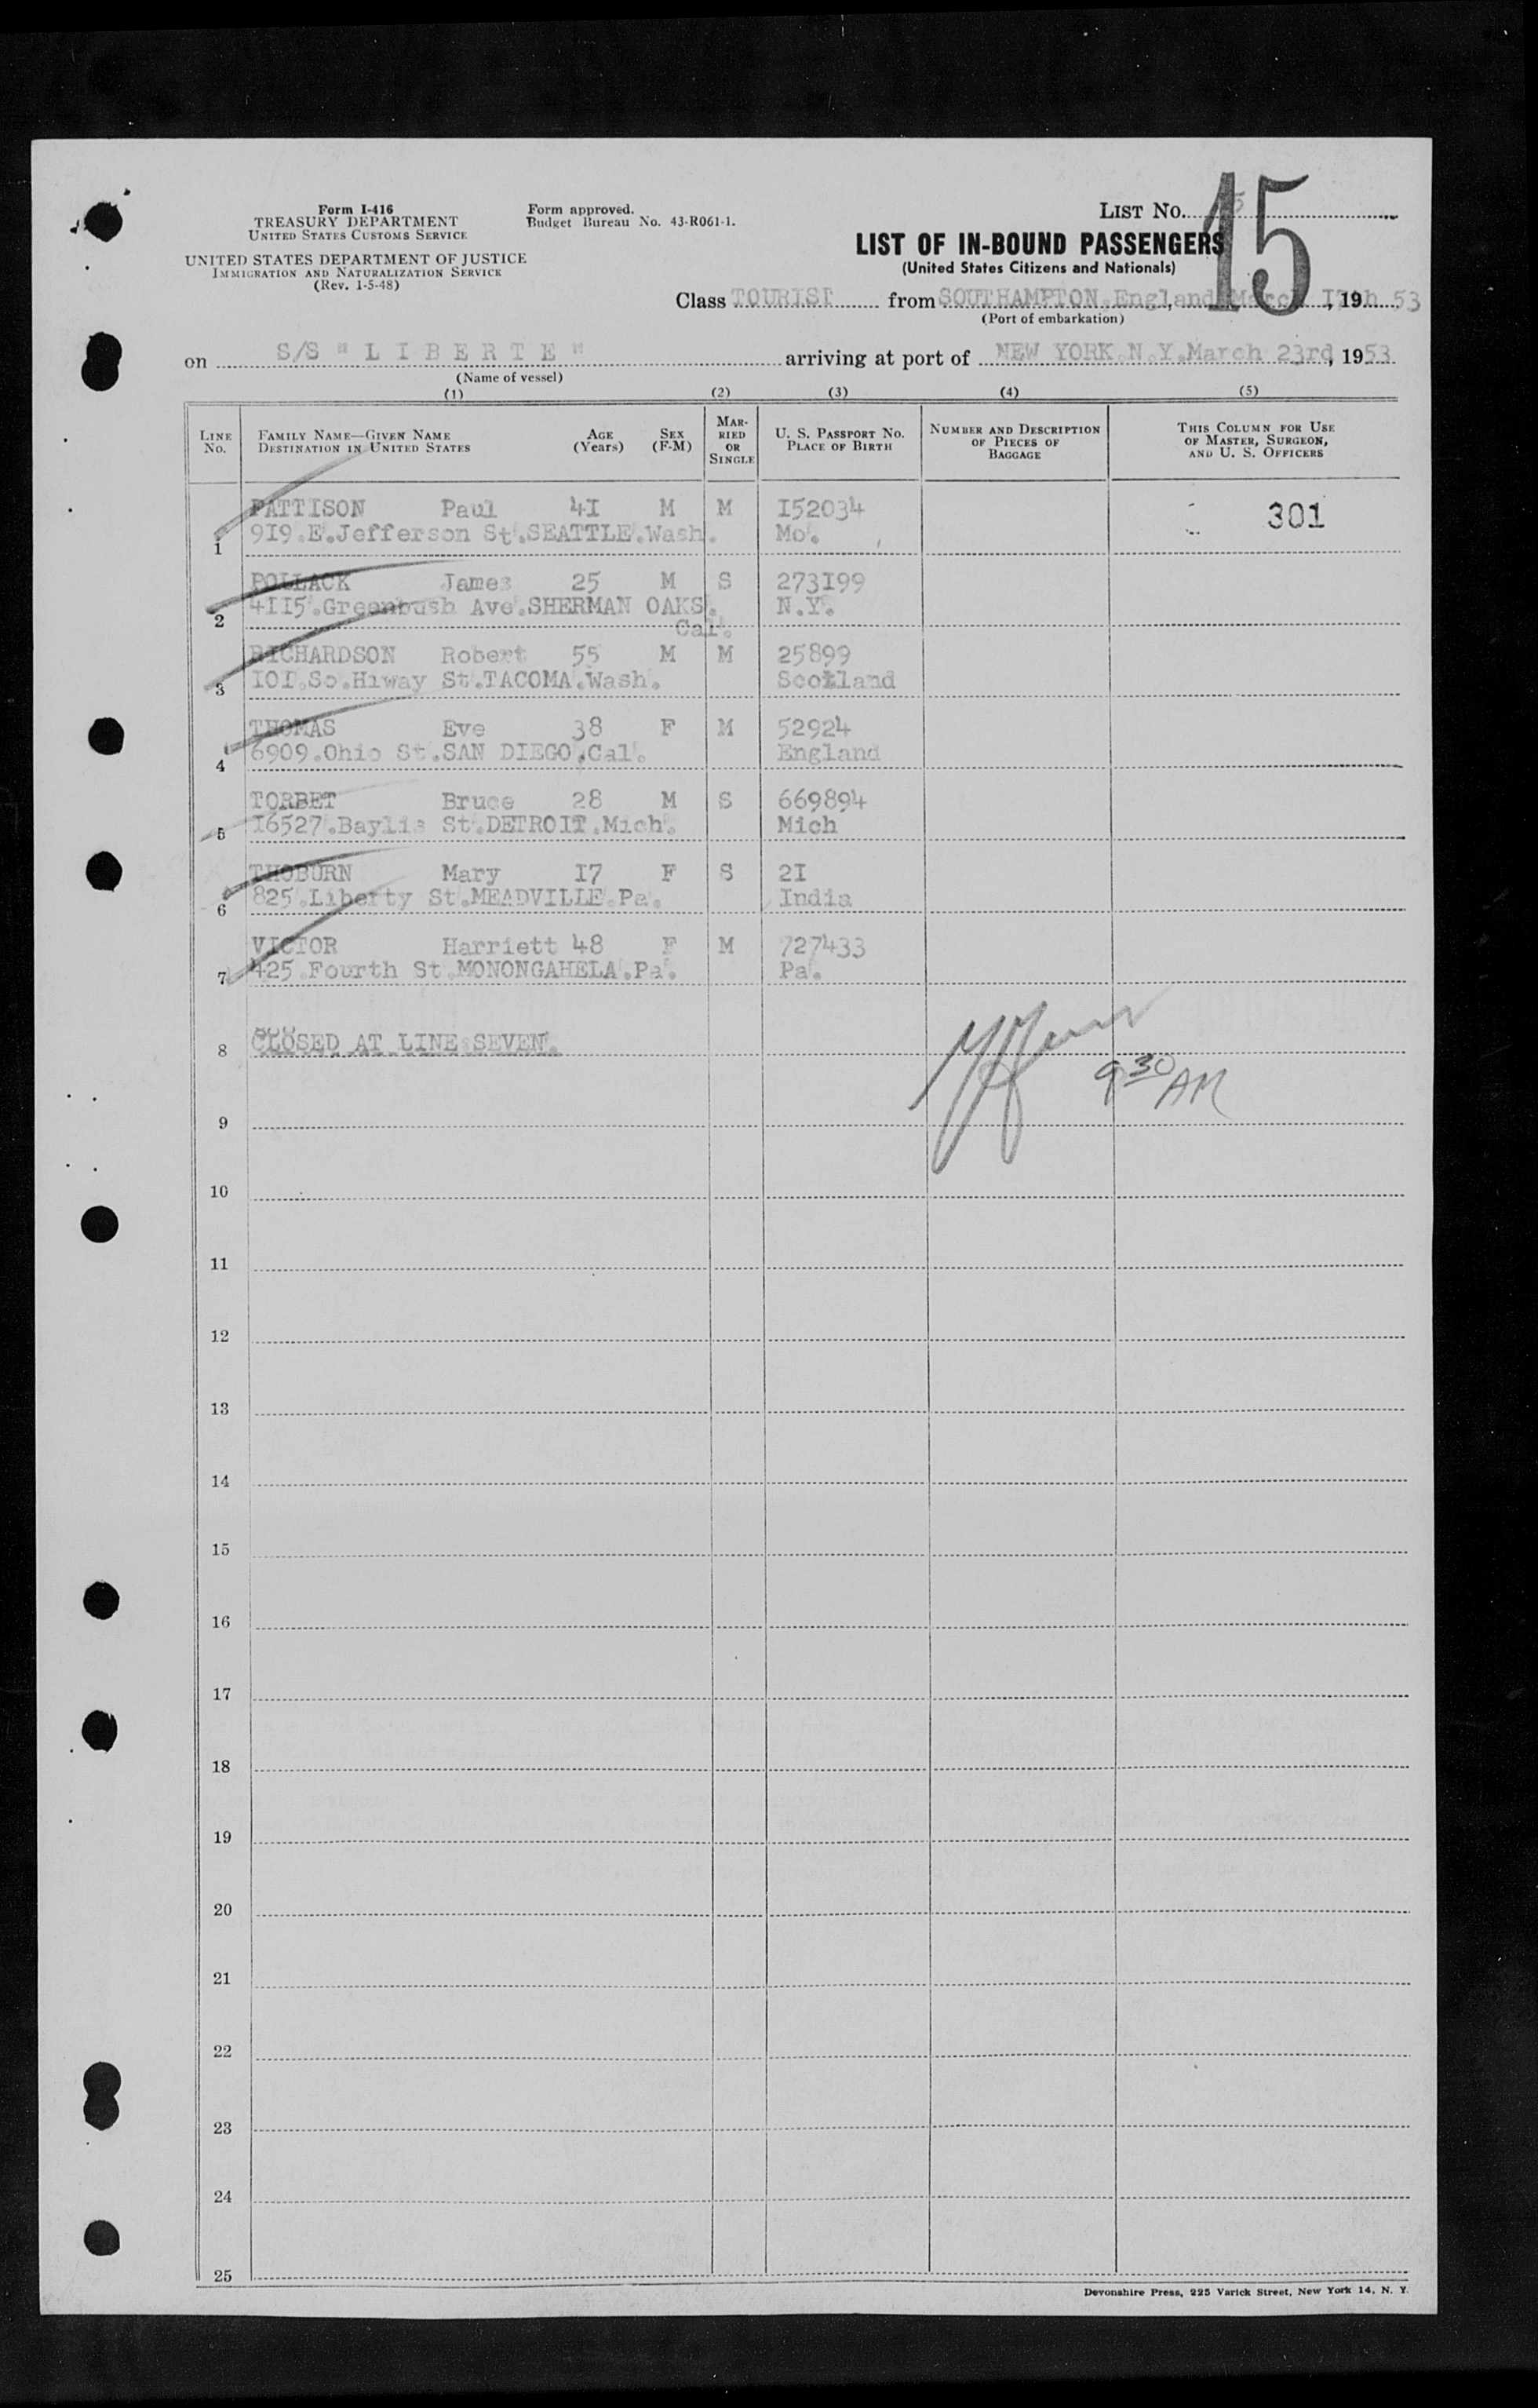 Form I-416
TREASURY DEPARTMENT
UNITED STATES CUSTOMS SERVICE
UNITED STATES DEPARTMENT OF JUSTICE
IMMIGRATION AND NATURALIZATION SERVICE
(Rev. 1-5-48)
Form approved.
Budget Bureau No. 43-R061-1.
LIST No. 15
LIST OF IN-BOUND PASSENGERS
(United States Citizens and Nationals)
Class TOURIST from SOUTHAMPTON.England, March 17th, 1953
(Port of embarkation)
on S/S "L I B E R T E" arriving at port of NEW YORK.N.Y.March 23rd, 1953
(Name of vessel)
(1) (2) (3) (4) (5)
LINE NO. FAMILY NAME—GIVEN NAME DESTINATION IN UNITED STATES AGE (Years) SEX (F-M) MARRIED OR SINGLE U. S. PASSPORT NO. PLACE OF BIRTH NUMBER AND DESCRIPTION OF PIECES OF BAGGAGE THIS COLUMN FOR USE OF MASTER, SURGEON, AND U. S. OFFICERS
PATTISON Paul 4I M M I52034 301
1 9I9.E.Jefferson St.SEATTLE.Wash. Mo.
POLLACK James 25 M S 273I99
2 4II5.Greenbush Ave.SHERMAN OAKS. N.Y.
Cal.
RICHARDSON Robert 55 M M 25899
3 IOI.So.Hiway St.TACOMA.Wash. Scotland
THOMAS Eve 38 F M 52924
4 6909.Ohio St.SAN DIEGO.Cal. England
TORBET Bruce 28 M S 669894
5 I6527.Baylis St.DETROIT.Mich. Mich
THOBURN Mary I7 F S 2I
6 825.Liberty St.MEADVILLE.Pa. India
VICTOR Harriett 48 F M 727433
7 425 Fourth St.MONONGAHELA.Pa. Pa.
8 CLOSED AT LINE SEVEN.
9 30 AM
9
10
11
12
13
14
15
16
17
18
19
20
21
22
23
24
25
Devonshire Press, 225 Varick Street, New York 14, N. Y.